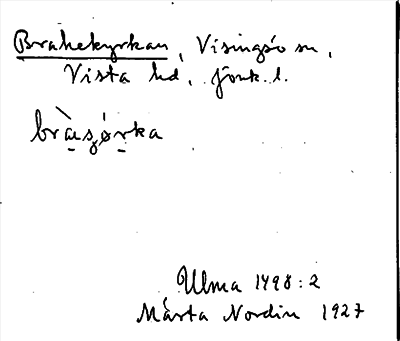 Brahekyrkan, Visingsö sn,
Vista hd, Jönk. l.
bràʂǿrka
Ulma 1498:2
Märta Nordin 1927